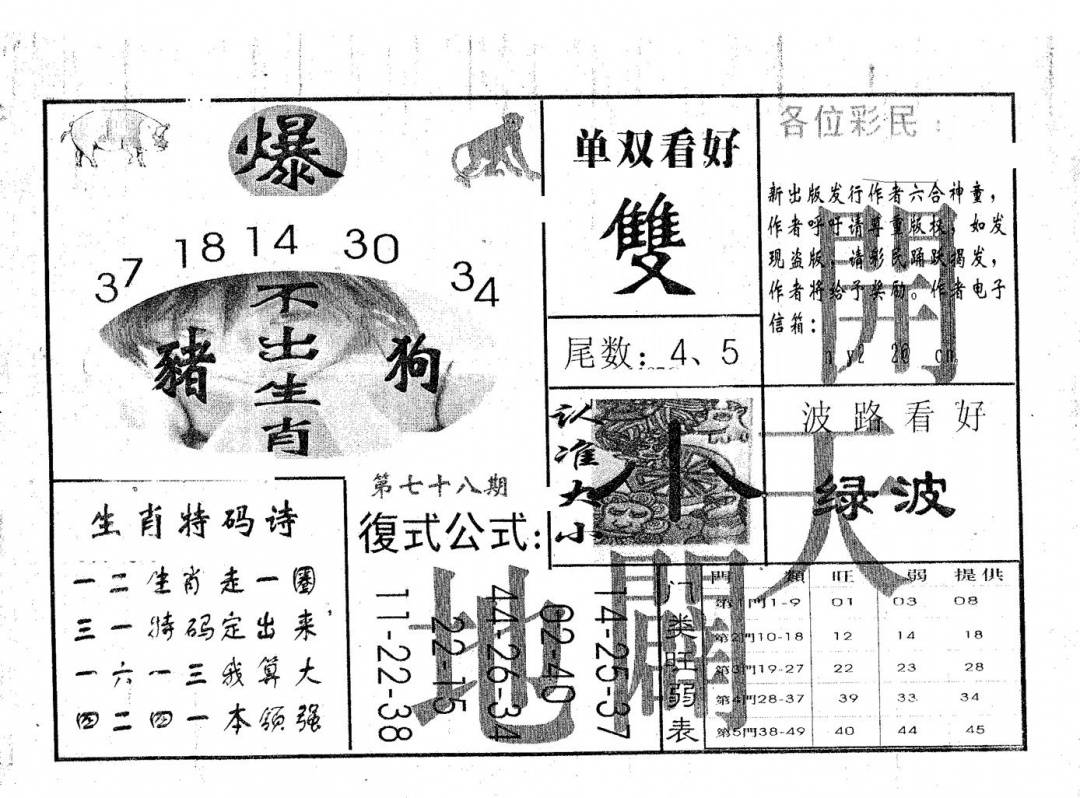 爆
37 18 14 30 34
不出生肖
豬
狗
单双看好
雙
尾数：4、5
各位彩民：
新出版发行作者六合神童，
作者呼吁请尊重版权，如发
现盗版，请彩民踊跃揭发，
作者将给予奖励。作者电子
信箱：
開
天
闢
地
认准大小
小
波路看好
绿波
生肖特码诗
一二生肖走一圈
三一特码定出来，
一六一三我算大
四二四一本领强
第七十八期
復式公式：
11-22-38
22-15
44-26-34
02-40
14-25-37
门类旺弱表
門類 旺 弱 提供
第1門1-9 01 03 08
第2門10-18 12 14 18
第3門19-27 22 23 28
第4門28-37 39 33 34
第5門38-49 40 44 45